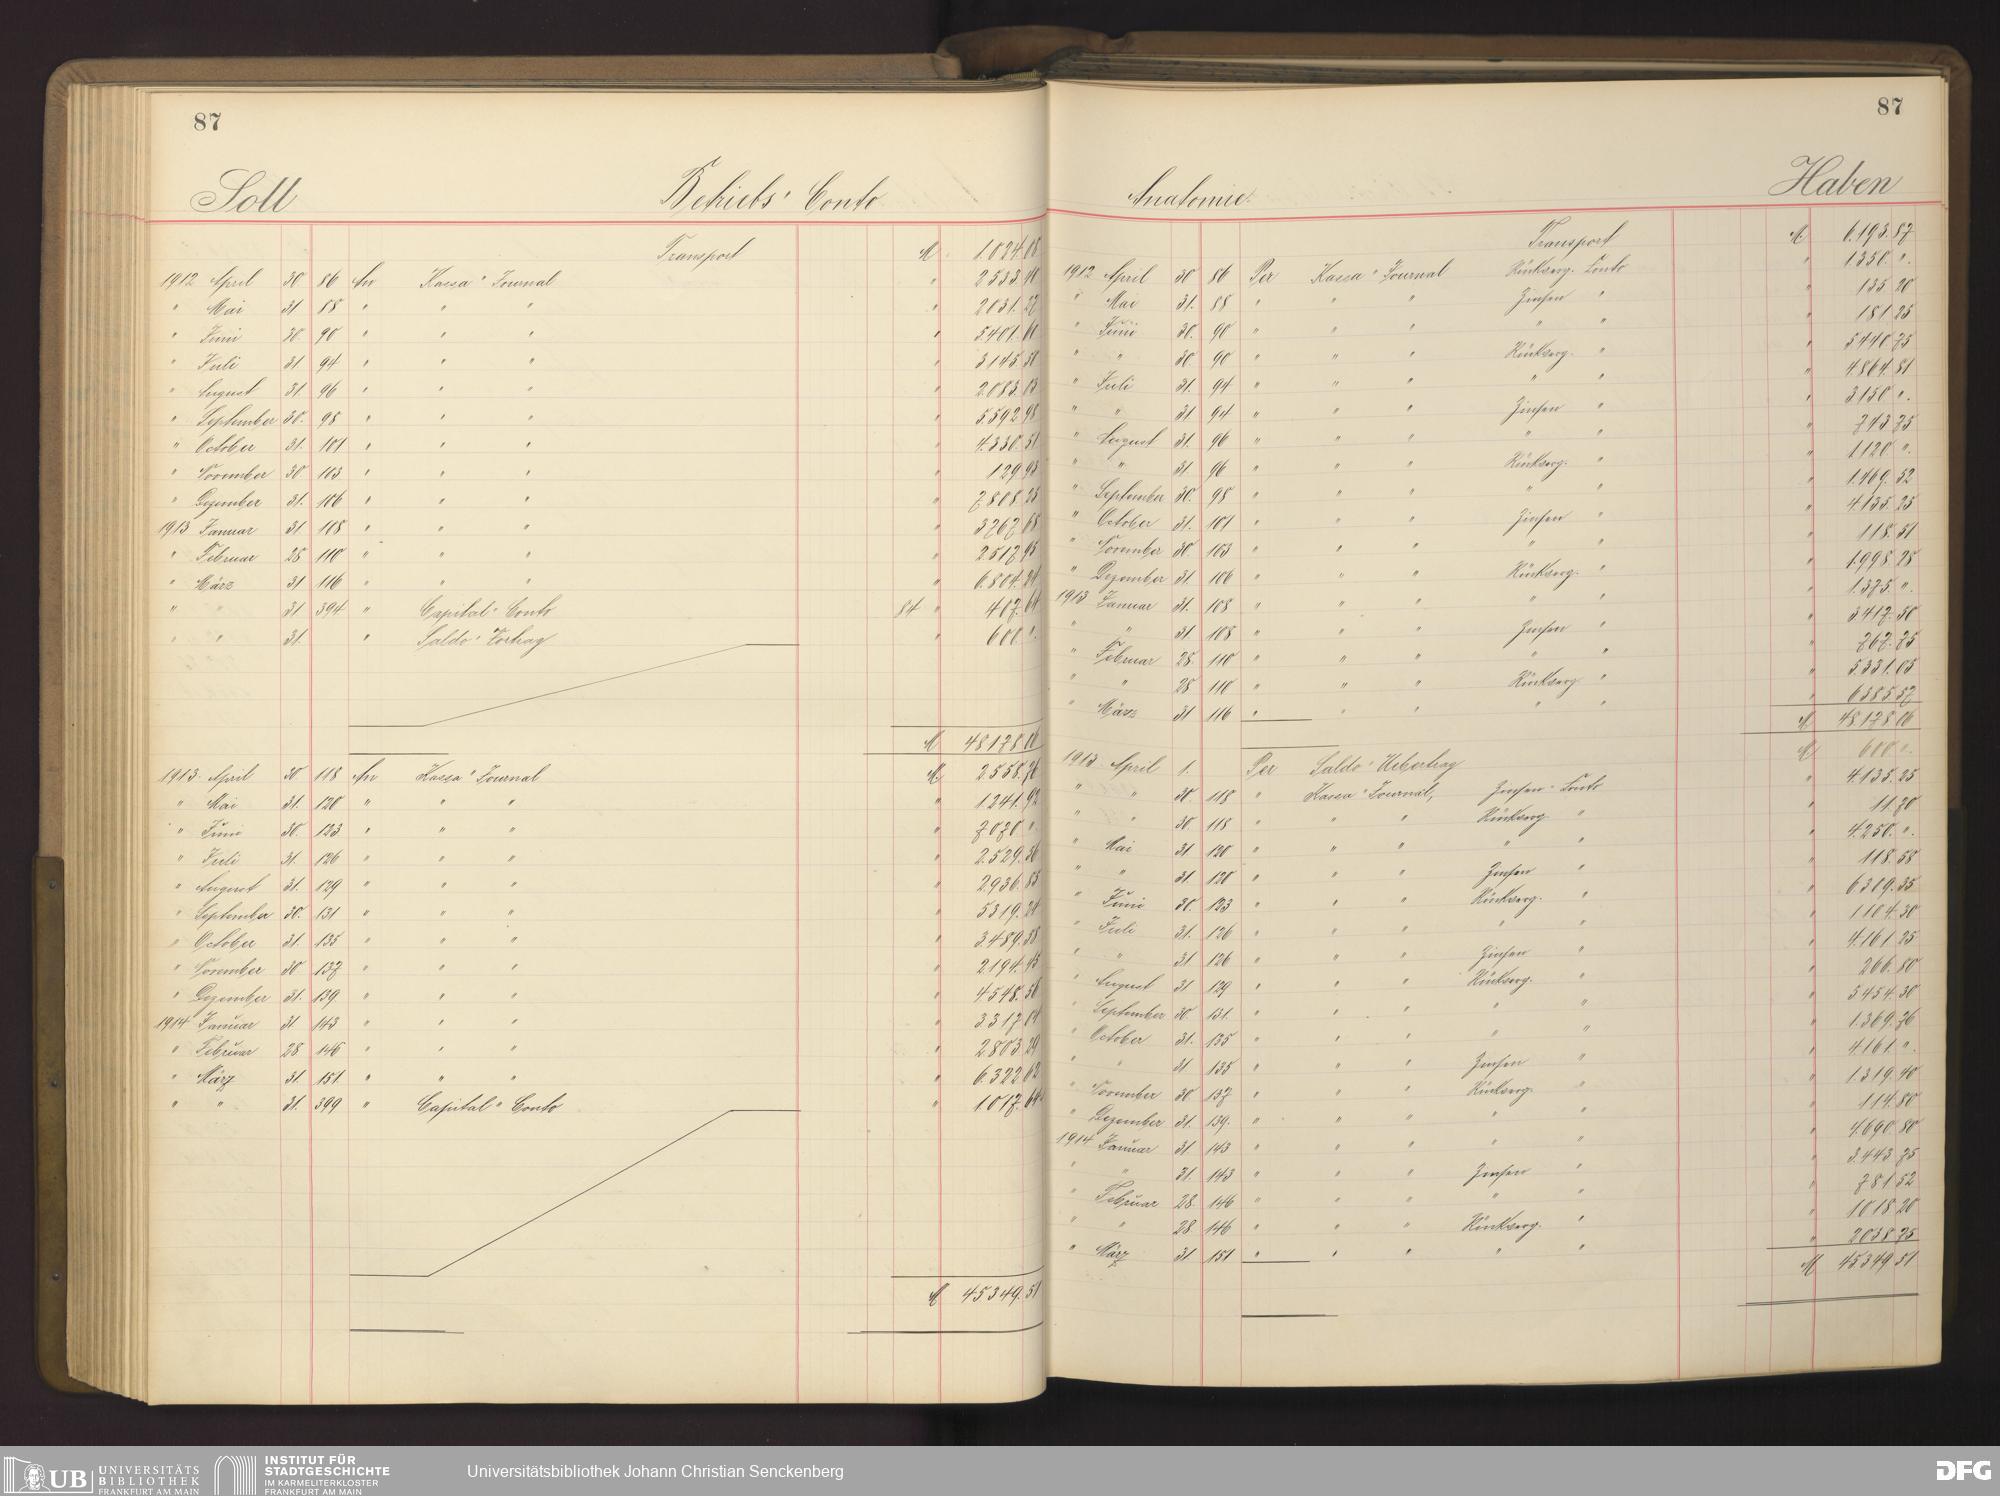 87
Soll Betriebs-Conto
Transport M 1.024.08
1912 April 30 86 An Kassa-Journal " 2533.40
" Mai 31 88 " " " " 2031.27
" Juni 30. 90 " " " " 5.401.60
" Juli 31 94 " " " " 3145.50
" August 31. 96 " " " " 2.083.03
" September 30. 98 " " " " 5.592.98
" October 31. 101 " " " " 4.330.51
" November 30 103 " " " " 129.93
" Dezember 31. 106 " " " " 7808.23
1913 Januar 31. 108 " " " " 3767.68
" Februar 28 110 " " " " 2.517.95
" März 31 116 " " " " 6.804.24
" " 31 394 " Capital-Conto 84 " 407.64
" " 31. " Saldo-Vortrag " 600.".
M 48178.06
1913. April 30. 118 An Kassa-Journal M 2.558.76
" Mai 31. 120 " " " " 1.241.92
" Juni 30. 123 " " " " 7070 ".
" Juli 31. 126 " " " " 2.529.36
" August 31. 129 " " " " 2.936.85
" September 30. 131 " " " " 5319.24
" October 31. 135 " " " " 3.489.38
" November 30 137 " " " " 2194.45
" Dezember 31. 139 " " " " 4548.56
1914 Januar 31. 143 " " " " 3.317.04
" Februar 28 146 " " " " 2803.29
" März 31. 151. " " " " 6.322.62
" " 31. 399 " Capital-Conto " 1.017.64
M 45349.51
87
Anatomie. Haben
Transport M 6.193.87
1912 April 30 86 Per Kassa-Journal Rückverg. Conto " 1350.".
" Mai 31. 88 " " " Zinsen " " 135.20
" Juni 30. 90 " " " " " " 181.25
" " 30. 90 " " " Rückverg. " " 5440.75
" Juli 31. 94 " " " " " " 4.864.81
" " 31 94 " " " Zinsen " " 3150 ".
" August 31. 96 " " " " " " 743.75
" " 31. 96 " " " Rückverg. " " 1120 ".
" September 30. 98 " " " " " " 1.469.52
" October 31. 101 " " " Zinsen " " 4.135.25
" November 30 103 " " " " " " 118.51
" Dezember 31 106 " " " Rückverg. " " 1.998.25
1913 Januar 31. 108 " " " " " " 1.375.".
" " 31 108 " " " Zinsen " " 3417.50
" Februar 28. 110 " " " " " " 767.75
" " 28 110 " " " Rückverg. " " 5.331.05
" März 31 116 " " " " " " 6385.57
M 48.178.06
1913. April 1. Per Saldo-Uebertrag M 600 ".
" " 30. 118 " Kassa-Journal, Zinsen-Conto " 4.135.25
" " 30. 118 " " " Rückverg. " " 11.70
" Mai 31 120 " " " " " " 4.250.".
" " 31. 120 " " " Zinsen " " 118.58
" Juni 30. 123 " " " Rückverg. " " 6319.35
" Juli 31. 126 " " " " " " 1104.30
" " 31 126 " " " Zinsen " " 4.161.25
" August 31 129 " " " Rückverg. " " 266.80
" September 30 131. " " " " " " 5454.30
" October 31. 135 " " " " " " 1.369.76
" " 31 135 " " " Zinsen " " 4.161.".
" November 30 137 " " " Rückverg. " " 1.319.40
" Dezember 31. 139. " " " " " " 114.80
1914 Januar 31 143 " " " " " " 4.690.80
" " 31. 143 " " " Zinsen " " 3.443.75
" Februar 28. 146 " " " " " " 781.52
" " 28 146 " " " Rückverg. " " 1018.20
" März 31 151 " " " " " " 2038.75
M 45349.51
UB UNIVERSITÄTS BIBLIOTHEK FRANKFURT AM MAIN
INSTITUT FÜR STADTGESCHICHTE IM KARMELITERKLOSTER FRANKFURT AM MAIN
Universitätsbibliothek Johann Christian Senckenberg
DFG